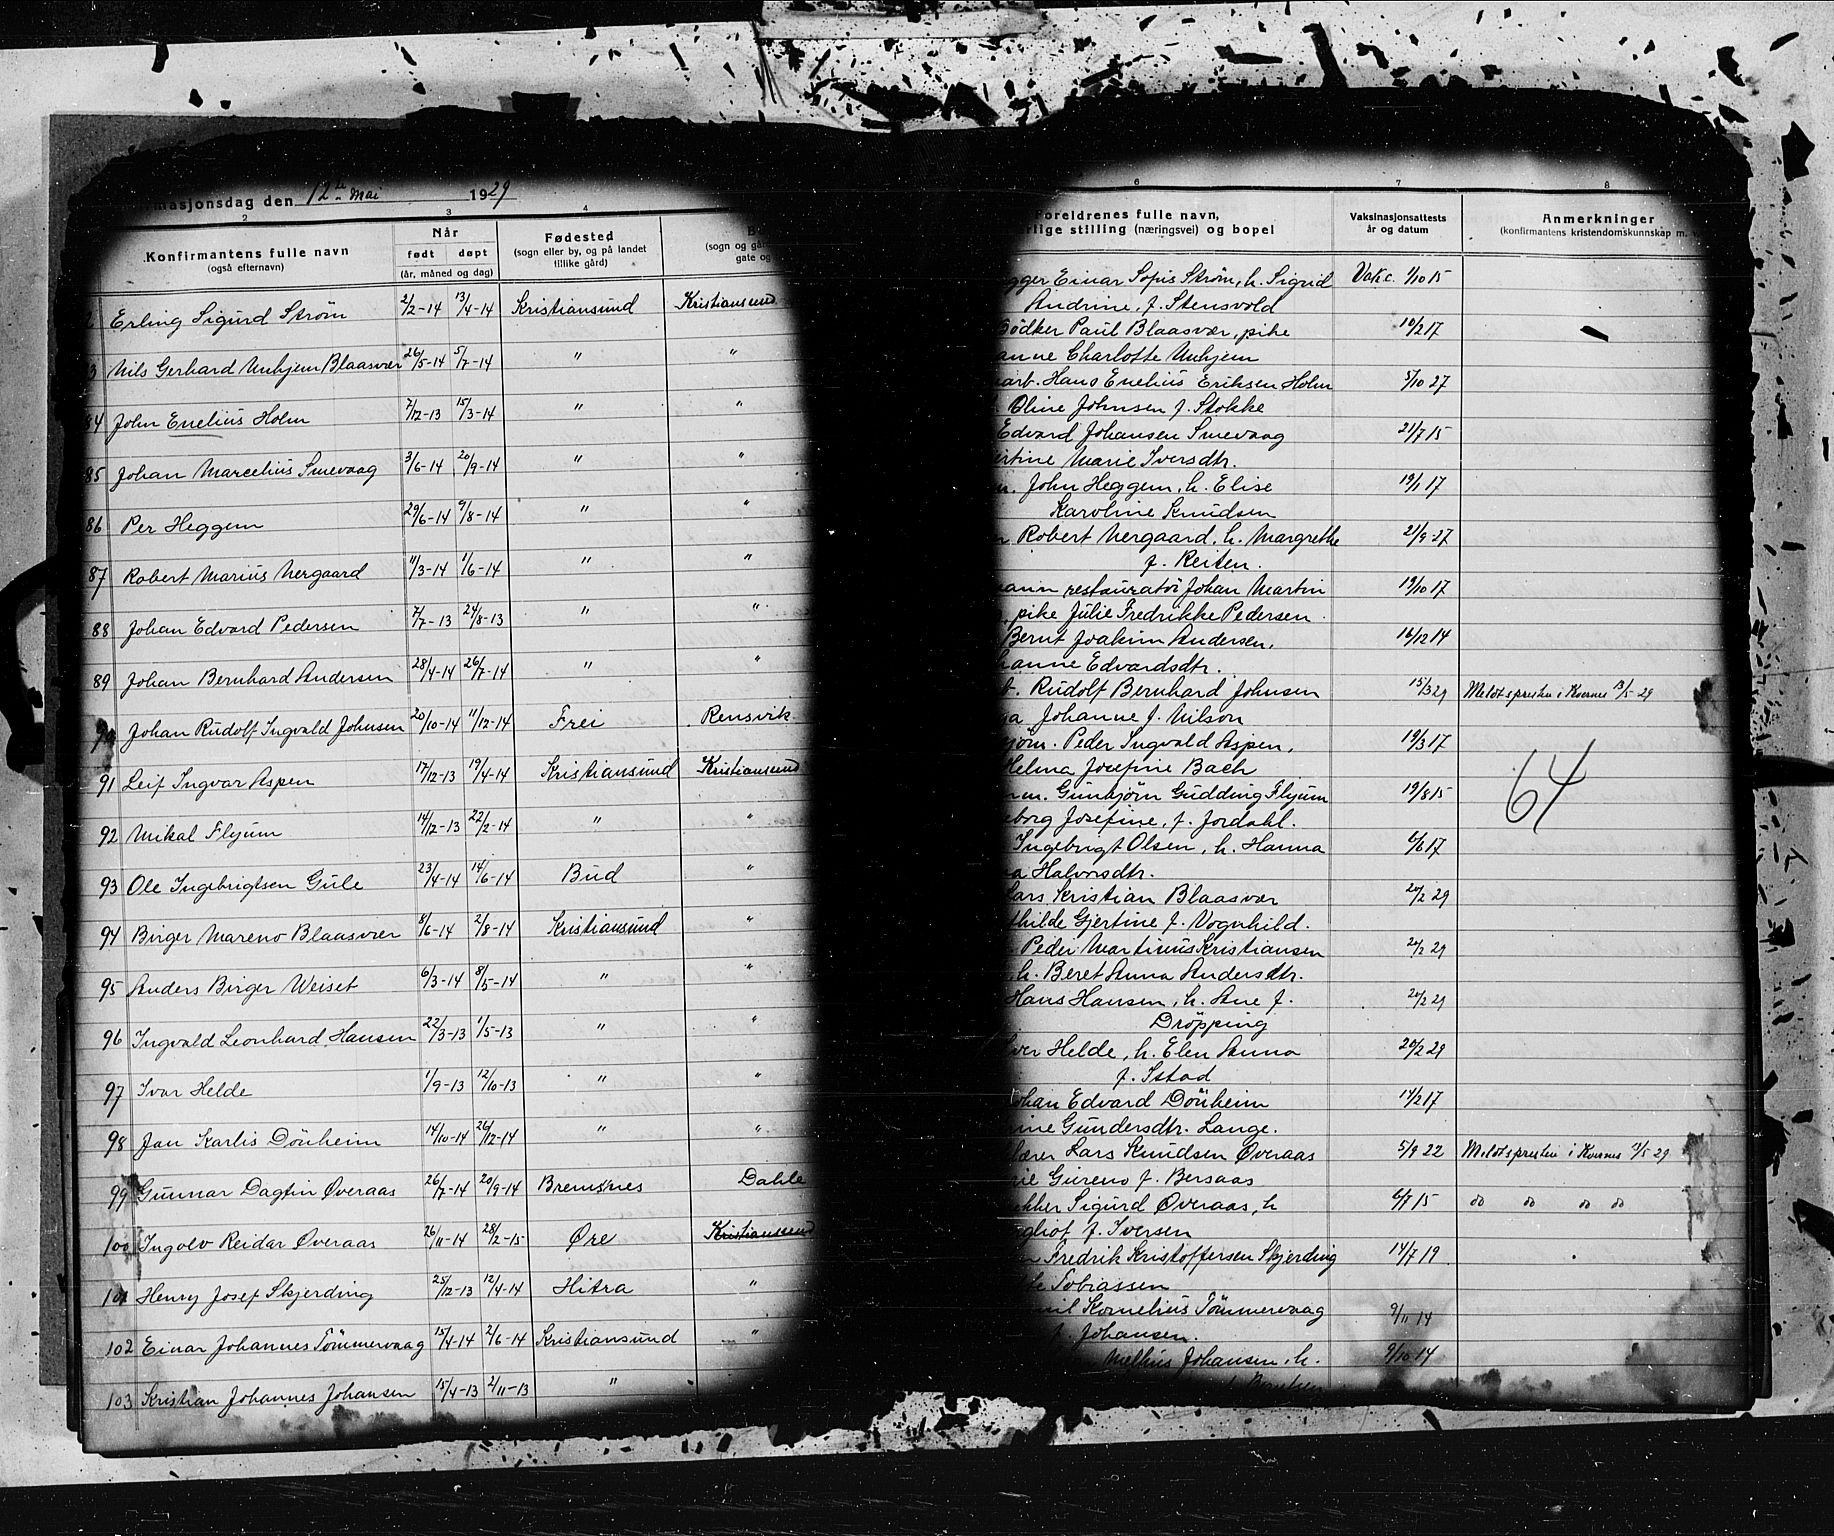 masjonsdag den 12te Mai 1929
2 3 4
Konfirmantens fulle navn
(også efternavn)
Når
født døpt
(år, måned og dag)
Fødested
(sogn eller by, og på landet
tillike gård)
(sogn og
gate og
Erling Sigurd Strøm 2/2-14 13/4-14 Kristiansund Kristiansund
3 Nils Gerhard Unhjem Blaasvær 26/5-14 5/7-14 " "
84 John Enelius Holm 7/12-13 15/3-14 " "
85 Johan Marcelius Smevaag 3/6-14 20/9-14 " "
86 Per Heggem 29/6-14 9/8-14 " "
87 Robert Marius Nergaard 11/3-14 1/6-14 " "
88 Johan Edvard Pedersen 7/7-13 24/8-13 " "
89 Johan Bernhard Andersen 28/4-14 26/7-14 " "
90 Johan Rudolf Ingvald Johnsen 20/10-14 11/12-14 Frei Rensvik
91 Leif Ingvar Aspen 17/12-13 19/4-14 Kristiansund Kristiansund
92 Mikal Flyum 14/12-13 22/2-14 " "
93 Ole Ingebrigtsen Gule 23/4-14 14/6-14 Bud "
94 Birger Mareno Blaasvær 8/6-14 2/8-14 Kristiansund "
95 Anders Birger Weiset 6/3-14 8/5-14 " "
96 Ingvald Leonhard Hansen 22/3-13 1/5-13 " "
97 Ivar Helde 1/9-13 12/10-13 " "
98 Jan Karlis Dönheim 14/10-14 26/12-14 " "
99 Gunnar Dagfin Øveraas 26/7-14 20/9-14 Bremsnes Dahle
100 Ingolv Reidar Øveraas 26/11-14 28/2-15 Øre Kristiansund
101 Henry Josef Skjerding 25/12-13 12/4-14 Hitra "
102 Einar Johannes Tömmervaag 15/4-14 2/6-14 Kristiansund "
103 Kristian Johannes Johansen 15/4-13 2/11-13 "
6 7 8
Foreldrenes fulle navn,
rlige stilling (næringsvei) og bopel
Vaksinasjonsattests
år og datum
Anmerkninger
(konfirmantens kristendomskunnskap m. v.
gger Einar Sofus Strøm, h. Sigrid Vakc. 1/10 15
Andrine, f. Stensvold
Bödker Paul Blaasvær, pike 10/2 17
anne Charlotte Unhjem
arb. Hans Enelius Eriksen Holm 5/10 27
Oline Johnsen f. Stokke
Edvard Johansen Smevaag 21/7 15
rtine Marie Iversdtr.
John Heggem, h. Elise 19/1 17
Karoline Knudsen
Robert Nergaard, h. Margrethe 21/9 27
f. Reiten.
mann restauratör Johan Martin 19/10 17
pike Julie Fredrikke Pedersen
Bernt Joakim Andersen, 16/12 14
hanne Edvardsdtr.
b. Rudolf Bernhard Johnsen 15/3 29 Meldt spresten i Kvernes 13/5-29
ga Johanne f. Nilson
jörn. Peder Ingvald Aspen, 19/3 17
Helma Josefine Bach
m. Gunbjörn Gudding Flyum 19/8 15
eborg Josefine, f. Jordahl. 64
Ingebrigt Olsen, h. Hanna 6/6 17
na Halvorsdtr.
Lars Kristian Blaasvær 20/2 29
thilde Gjertine f. Vognhild.
Peder Martinus Kristiansen 20/2 29
h. Beret Anna Andersdtr.
Hans Hansen, h. Ane f. 20/2 29
Dröpping
Iver Helde, h. Elen Anna 20/2 29
f. Istad
Johan Edvard Dönheim 14/2 17
rine Gundersdtr. Lange.
lærer Lars Knudsen Øveraas 5/9 22 Meldt spresten i Kvernes 13/5 29
rie Gureno f. Bersaas
kker Sigurd Øveraas, h 6/7 15 do do do do
gliot f. Iversen
Fredrik Kristoffersen Skjerding 14/7 19
Tobiassen
mil Kornelius Tömmervaag 9/11 14
f. Johansen.
Melhus Johansen, h. 9/10 14